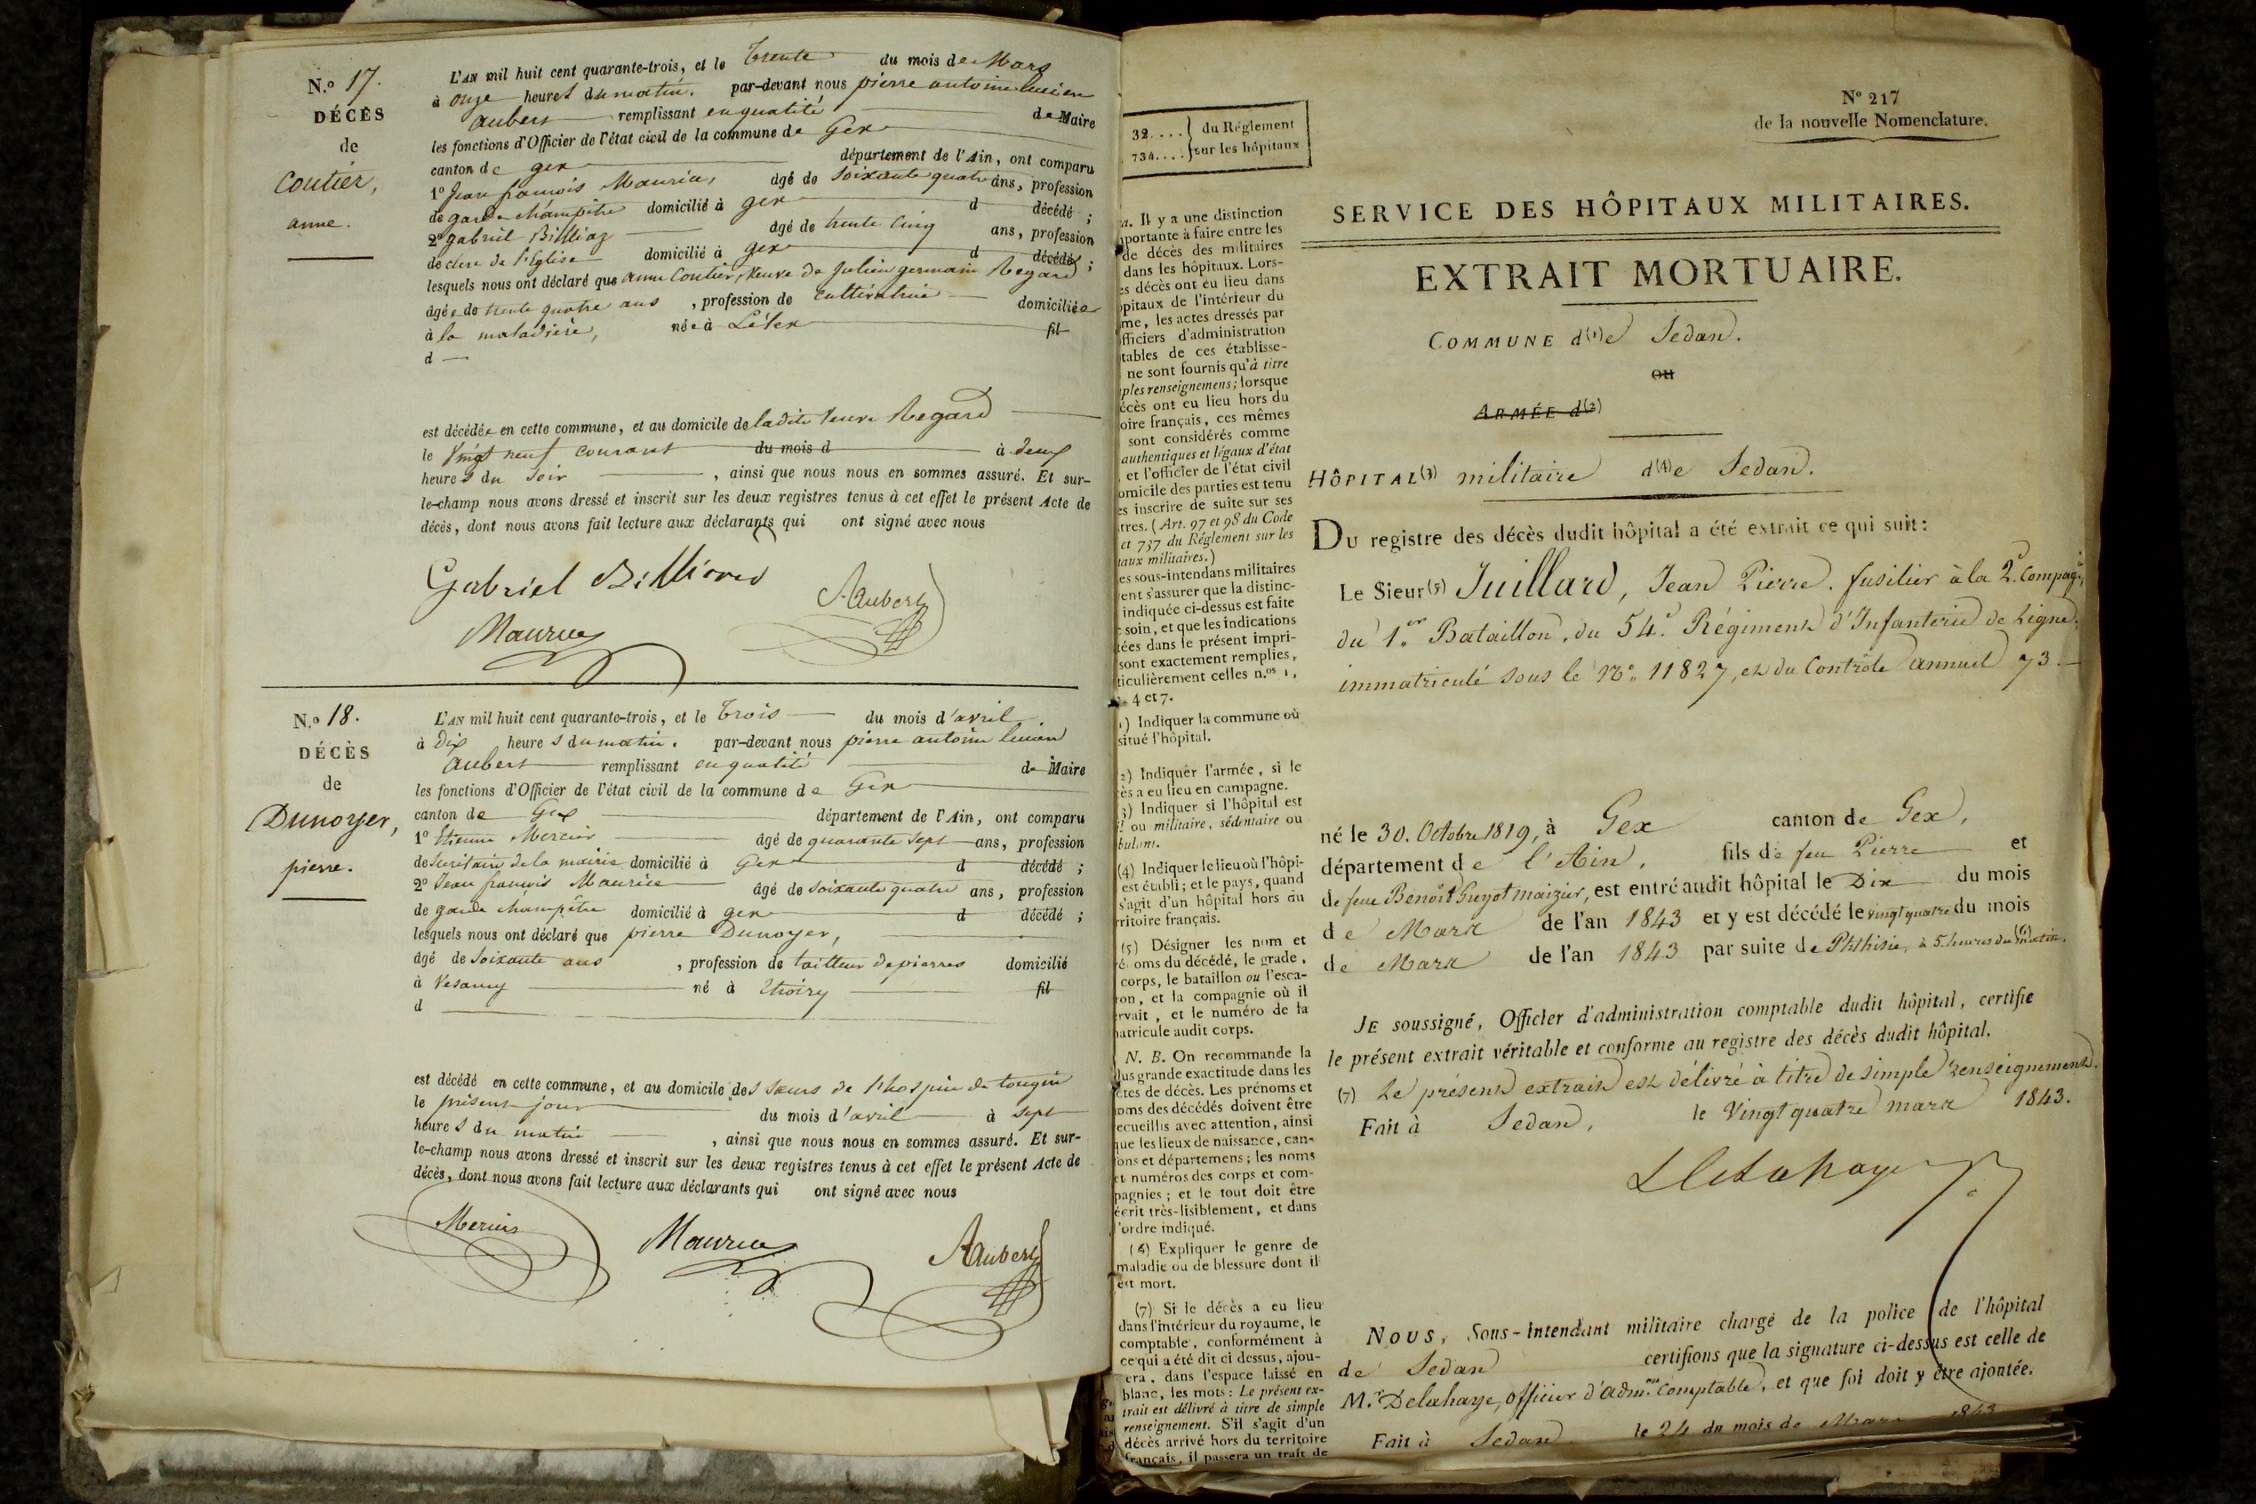 N.o 17.
DÉCÈS
de
Coutier,
anne.
L'AN mil huit cent quarante-trois, et le Trente du mois de Mars
à onze heures du matin. par-devant nous pierre antoine lucien
aubert remplissant en qualité de Maire
les fonctions d'Officier de l'état civil de la commune de Gex
canton de gex département de l'Ain, ont comparu
1o Jean françois Maurice, âgé de soixante quatre ans, profession
de garde champêtre domicilié à gex d décédé ;
2o gabriel Billiaz âgé de trente cinq ans, profession
de clerc de l'Eglise domicilié à gex d décédé ;
lesquels nous ont déclaré que anne Coutier, veuve de Julien germain Regard
âgée de trente quatre ans , profession de cultivatrice domiciliée
à la maladière, née à Lélex fil
d
est décédée en cette commune, et au domicile de ladite veuve Regard
le vingt neuf courant du mois d à deux
heures du soir , ainsi que nous nous en sommes assuré. Et sur-
le-champ nous avons dressé et inscrit sur les deux registres tenus à cet effet le présent Acte de
décès, dont nous avons fait lecture aux déclarants qui ont signé avec nous
Gabriel
Maurice
Aubert
N.o 18.
DÉCÈS
de
Dunoyer,
pierre.
L'AN mil huit cent quarante-trois, et le Trois du mois d'avril.
à dix heures du matin. par-devant nous pierre antoine lucien
aubert remplissant en qualité de Maire
les fonctions d'Officier de l'état civil de la commune de Gex
canton de Gex département de l'Ain, ont comparu
1o Etienne Mercier âgé de quarante sept ans, profession
de secrétaire de la mairie domicilié à Gex d décédé ;
2o Jean françois Maurice âgé de soixante quatre ans, profession
de garde champêtre domicilié à gex d décédé ;
lesquels nous ont déclaré que pierre Dunoyer,
âgé de soixante ans , profession de tailleur de pierres domicilié
à Vesancy né à thoiry fil
d
est décédé en cette commune, et au domicile des sœurs de l'hospice de tougin
le présent jour du mois d'avril à sept
heures du matin , ainsi que nous nous en sommes assuré. Et sur-
le-champ nous avons dressé et inscrit sur les deux registres tenus à cet effet le présent Acte de
décès, dont nous avons fait lecture aux déclarants qui ont signé avec nous
Mercier
Maurice
Aubert
32.... du Réglement
734.... sur les hôpitaux
Il y a une distinction
portante à faire entre les
de décès des militaires
dans les hôpitaux. Lors-
es décès ont eu lieu dans
pitaux de l'intérieur du
me, les actes dressés par
fficiers d'administration
tables de ces établisse-
ne sont fournis qu'à titre
ples renseignemens; lorsque
écès ont eu lieu hors du
oire français, ces mêmes
sont considérés comme
authentiques et légaux d'état
et l'officier de l'état civil
omicile des parties est tenu
es inscrire de suite sur ses
tres. (Art. 97 et 98 du Code
et 737 du Réglement sur les
taux militaires.)
es sous-intendans militaires
ent s'assurer que la distinc-
indiquée ci-dessus est faite
soin, et que les indications
ées dans le présent impri-
sont exactement remplies,
ticulièrement celles n.os 1,
4 et 7.
1) Indiquer la commune où
situé l'hôpital.
2) Indiquer l'armée, si le
ès a eu lieu en campagne.
3) Indiquer si l'hôpital est
ou militaire, sédentaire ou
bulant.
(4) Indiquer le lieu où l'hôpi-
est établi; et le pays, quand
s'agit d'un hôpital hors du
rritoire français.
(5) Désigner les nom et
oms du décédé, le grade,
corps, le bataillon ou l'esca-
on, et la compagnie où il
rvait, et le numéro de la
atricule audit corps.
N. B. On recommande la
lus grande exactitude dans les
ctes de décès. Les prénoms et
oms des décédés doivent être
ecueillis avec attention, ainsi
que les lieux de naissance, can-
ons et départemens; les noms
et numéros des corps et com-
pagnies; et le tout doit être
écrit très-lisiblement, et dans
l'ordre indiqué.
(6) Expliquer le genre de
maladie ou de blessure dont il
est mort.
(7) Si le décès a eu lieu
dans l'intérieur du royaume, le
comptable, conformément à
ce qui a été dit ci dessus, ajou-
era, dans l'espace laissé en
blanc, les mots: Le présent ex-
trait est délivré à titre de simple
renseignement. S'il s'agit d'un
décès arrivé hors du territoire
français, il passera un trait de
No 217
de la nouvelle Nomenclature.
SERVICE DES HÔPITAUX MILITAIRES.
EXTRAIT MORTUAIRE.
COMMUNE d(1)e Sedan.
ou
ARMÉE d(2)
HÔPITAL(3) militaire d(4)e Sedan.
Du registre des décès dudit hôpital a été extrait ce qui suit:
Le Sieur(5) Juillard, Jean Pierre. fusilier à la 2.e Compagie
du 1.er Bataillon, du 54.e Régiment d'Infanterie de Ligne,
immatriculé sous le No. 11827, et du Contrôle annuel 73
né le 30. Octobre 1819, à Gex canton de Gex,
département de l'Ain, fils de feu Pierre et
de feue Benoit Guyot Maizier, est entré audit hôpital le Dix du mois
de Mars de l'an 1843 et y est décédé le vingt quatre du mois
de Mars de l'an 1843 par suite de Phthisie, à 5 heures du (6) matin.
JE soussigné, Officier d'administration comptable dudit hôpital, certifie
le présent extrait véritable et conforme au registre des décès dudit hôpital.
(7) Le présent extrait est délivré à titre de simple renseignement.
Fait à Sedan, le Vingt quatre mars 1843.
Delahaye
NOUS, Sous-Intendant militaire chargé de la police de l'hôpital
de Sedan certifions que la signature ci-dessus est celle de
M.r Delahaye, officier d'adm.on comptable, et que foi doit y être ajoutée.
Fait à Sedan le 24 du mois de Mars 1843